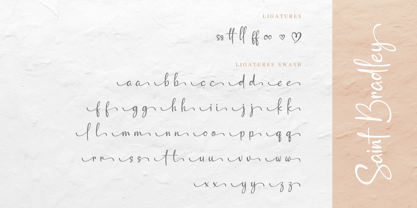 LIGATURES
ss tt ll ff oo ♡ ♡
LIGATURES SWASH
aa bb cc dd ee
ff gg hh ii jj kk
ll mm nn oo pp qq
rr ss tt uu vv ww
xx yy zz
Saint Bradley